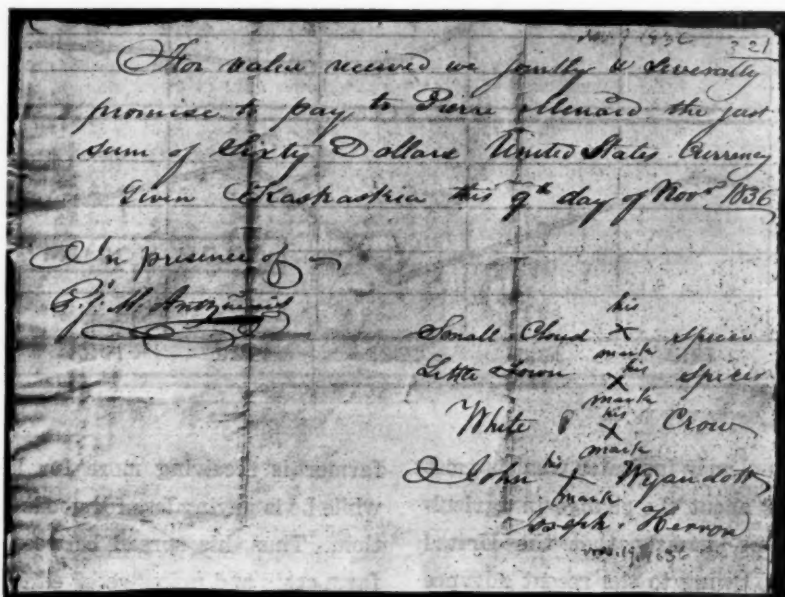 Nov. 9 1836 321
For value received we jointly & Severally
promise to pay to Pierre Menard the just
sum of Sixty Dollars United States Currency
Given Kaskaskia this 9th day of Novr 1836
In presence of
his
Small Cloud X Spicer
mark
his
Little Town X Spicer
mark
his
White X Crow
mark
his
John X Wyandott
mark
Joseph Herron
Nov. 19, 1836